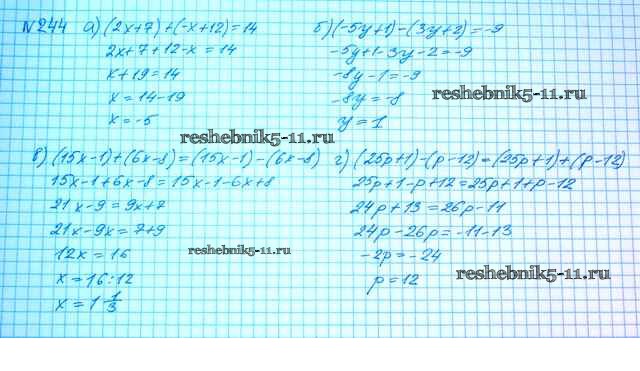 №244 а) (2x+7)+(-x+12)=14
2x+7+12-x=14
x+19=14
x=14-19
x=-5
б) (-5y+1)-(3y+2)=-9
-5y+1-3y-2=-9
-8y-1=-9
-8y=-8
y=1
reshebnik5-11.ru
reshebnik5-11.ru
в) (15x-1)+(6x-8)=(15x-1)-(6x-8)
15x-1+6x-8=15x-1-6x+8
21x-9=9x+7
21x-9x=7+9
12x=16
x=16:12
x=1 1/3
reshebnik5-11.ru
г) (25p+1)-(p-12)=(25p+1)+(p-12)
25p+1-p+12=25p+1+p-12
24p+13=26p-11
24p-26p=-11-13
-2p=-24
p=12
reshebnik5-11.ru